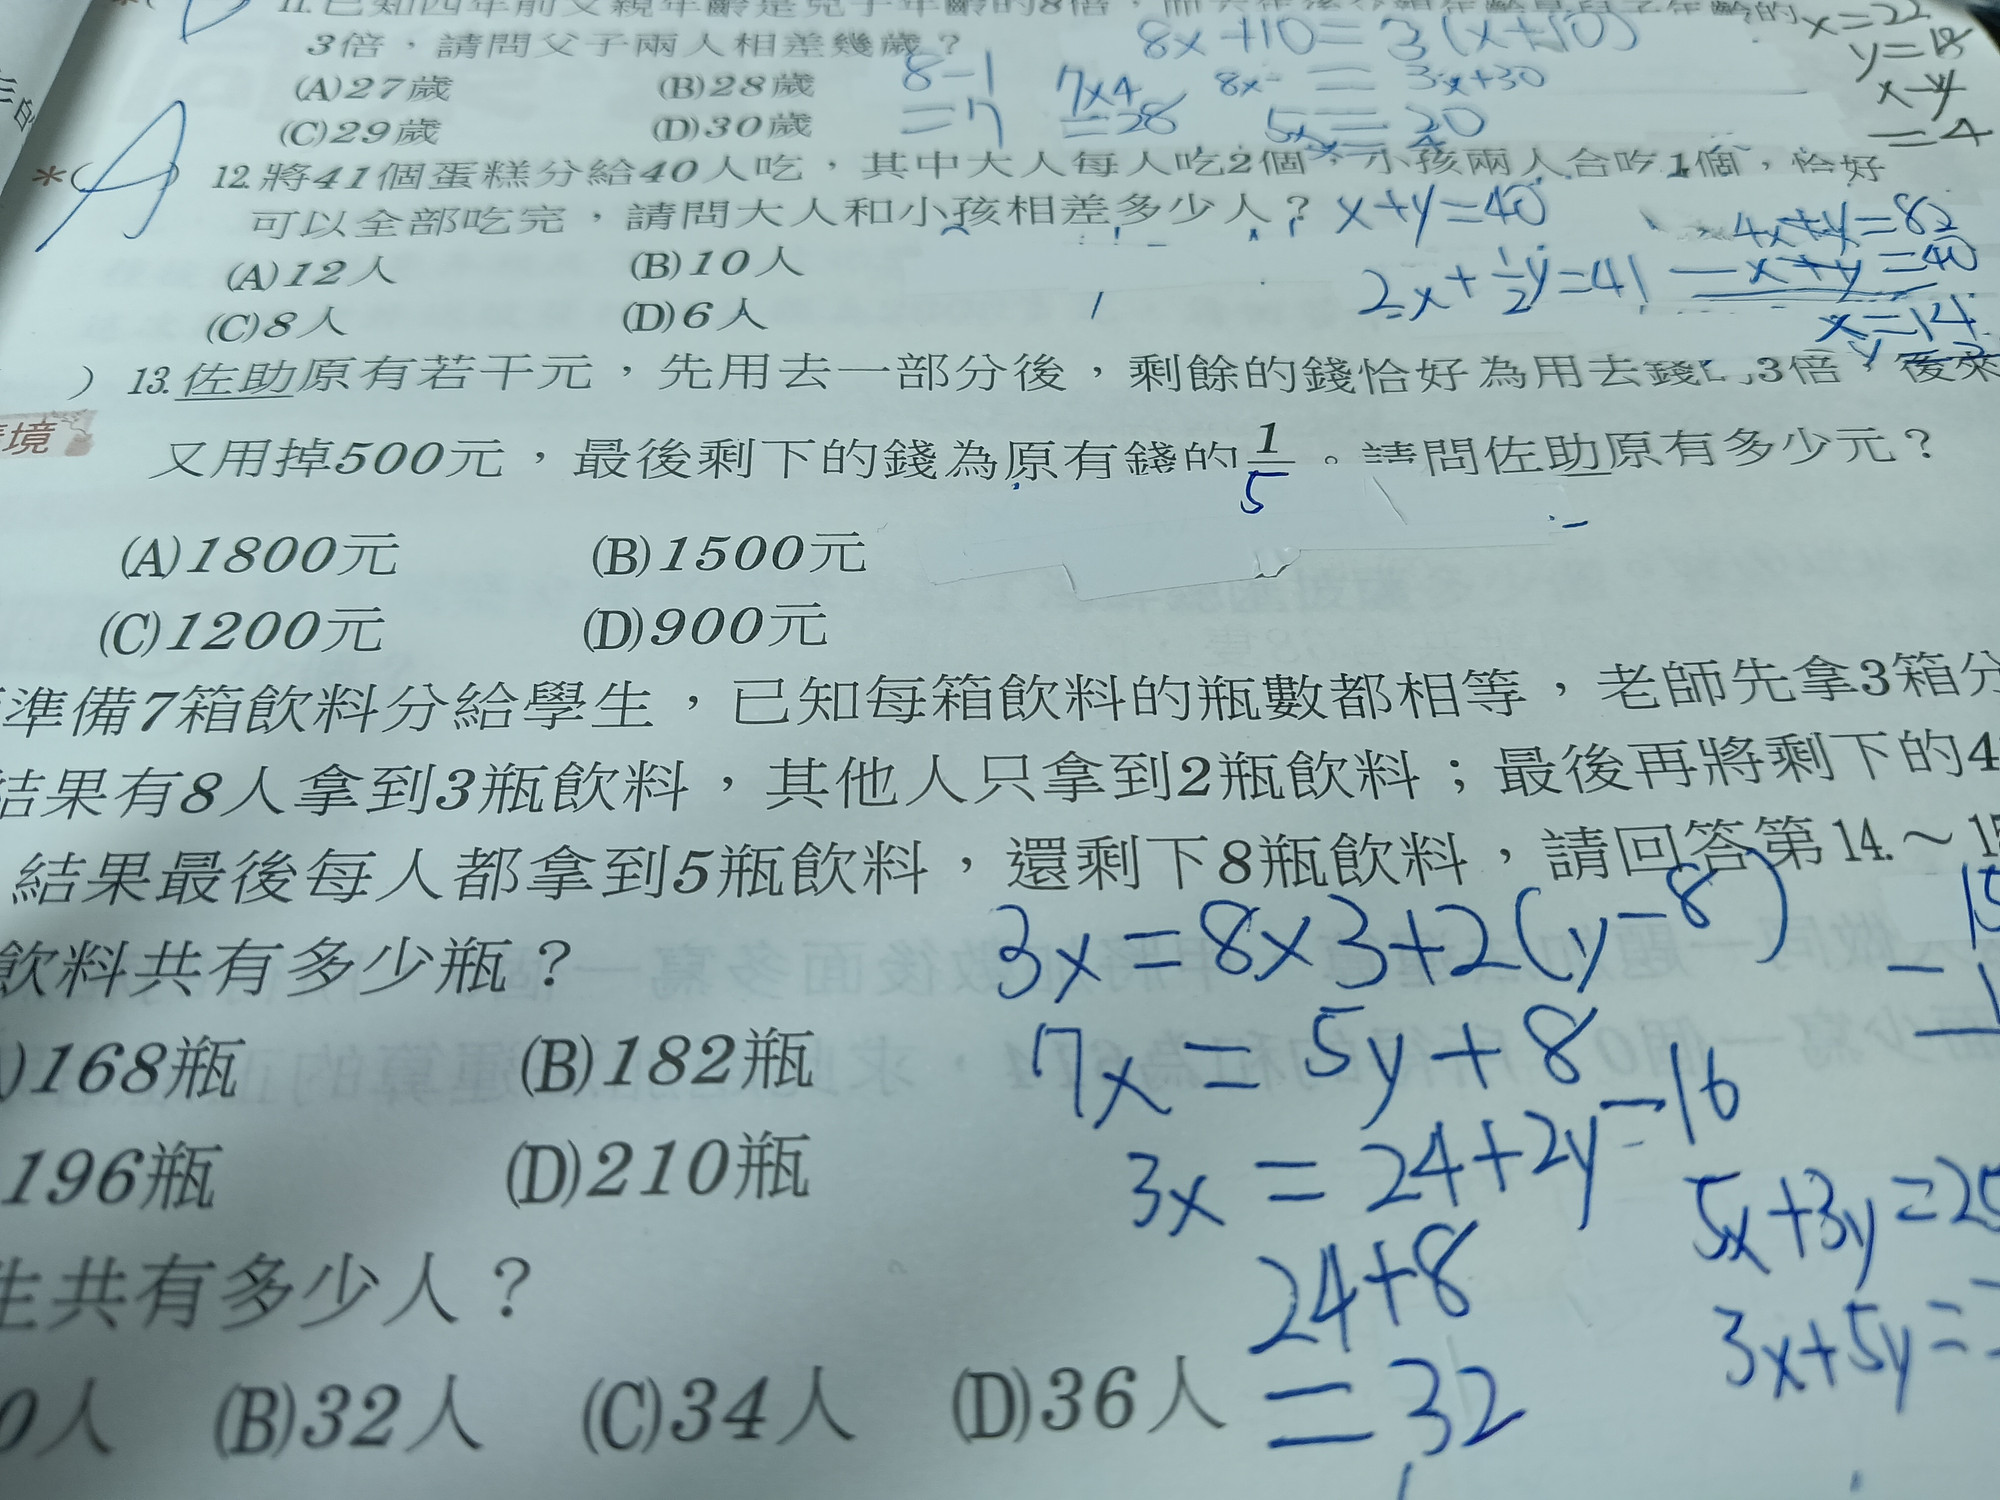 11.已知四年前父親年齡是兒子年齡的8倍，而六年後父親年齡是兒子年齡的
3倍，請問父子兩人相差幾歲？
8x+10=3(x+10)
x=22
y=18
x-y
=4
(A)27歲 (B)28歲
8-1
=7
7x4
=28
8x = 3x+30
5x=20
(C)29歲 (D)30歲
*( A ) 12.將41個蛋糕分給40人吃，其中大人每人吃2個，小孩兩人合吃1個，恰好
可以全部吃完，請問大人和小孩相差多少人？
x+y=40
2x+½y=41
4x+y=82
-x+y=40
x=14
(A)12人 (B)10人
(C)8人 (D)6人
) 13.佐助原有若干元，先用去一部分後，剩餘的錢恰好為用去錢 3倍，後來
境
又用掉500元，最後剩下的錢為原有錢的1/5。請問佐助原有多少元？
(A)1800元 (B)1500元
(C)1200元 (D)900元
準備7箱飲料分給學生，已知每箱飲料的瓶數都相等，老師先拿3箱分
結果有8人拿到3瓶飲料，其他人只拿到2瓶飲料；最後再將剩下的4
結果最後每人都拿到5瓶飲料，還剩下8瓶飲料，請回答第14.～15
飲料共有多少瓶？
3x=8x3+2(y-8)
)168瓶 (B)182瓶
7x=5y+8
196瓶 (D)210瓶
3x=24+2y-16
5x+3y=25
生共有多少人？
24+8
3x+5y=
0人 (B)32人 (C)34人 (D)36人
=32